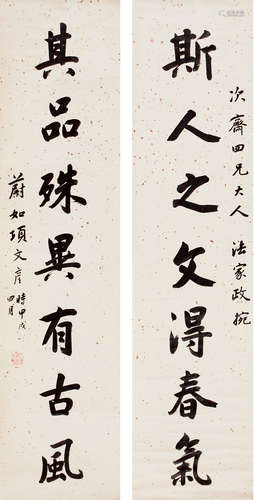 次齋四兄大人 法家政捥
斯人之文得春氣
其品殊異有古風
蔚如項文彦 時甲戌
四月